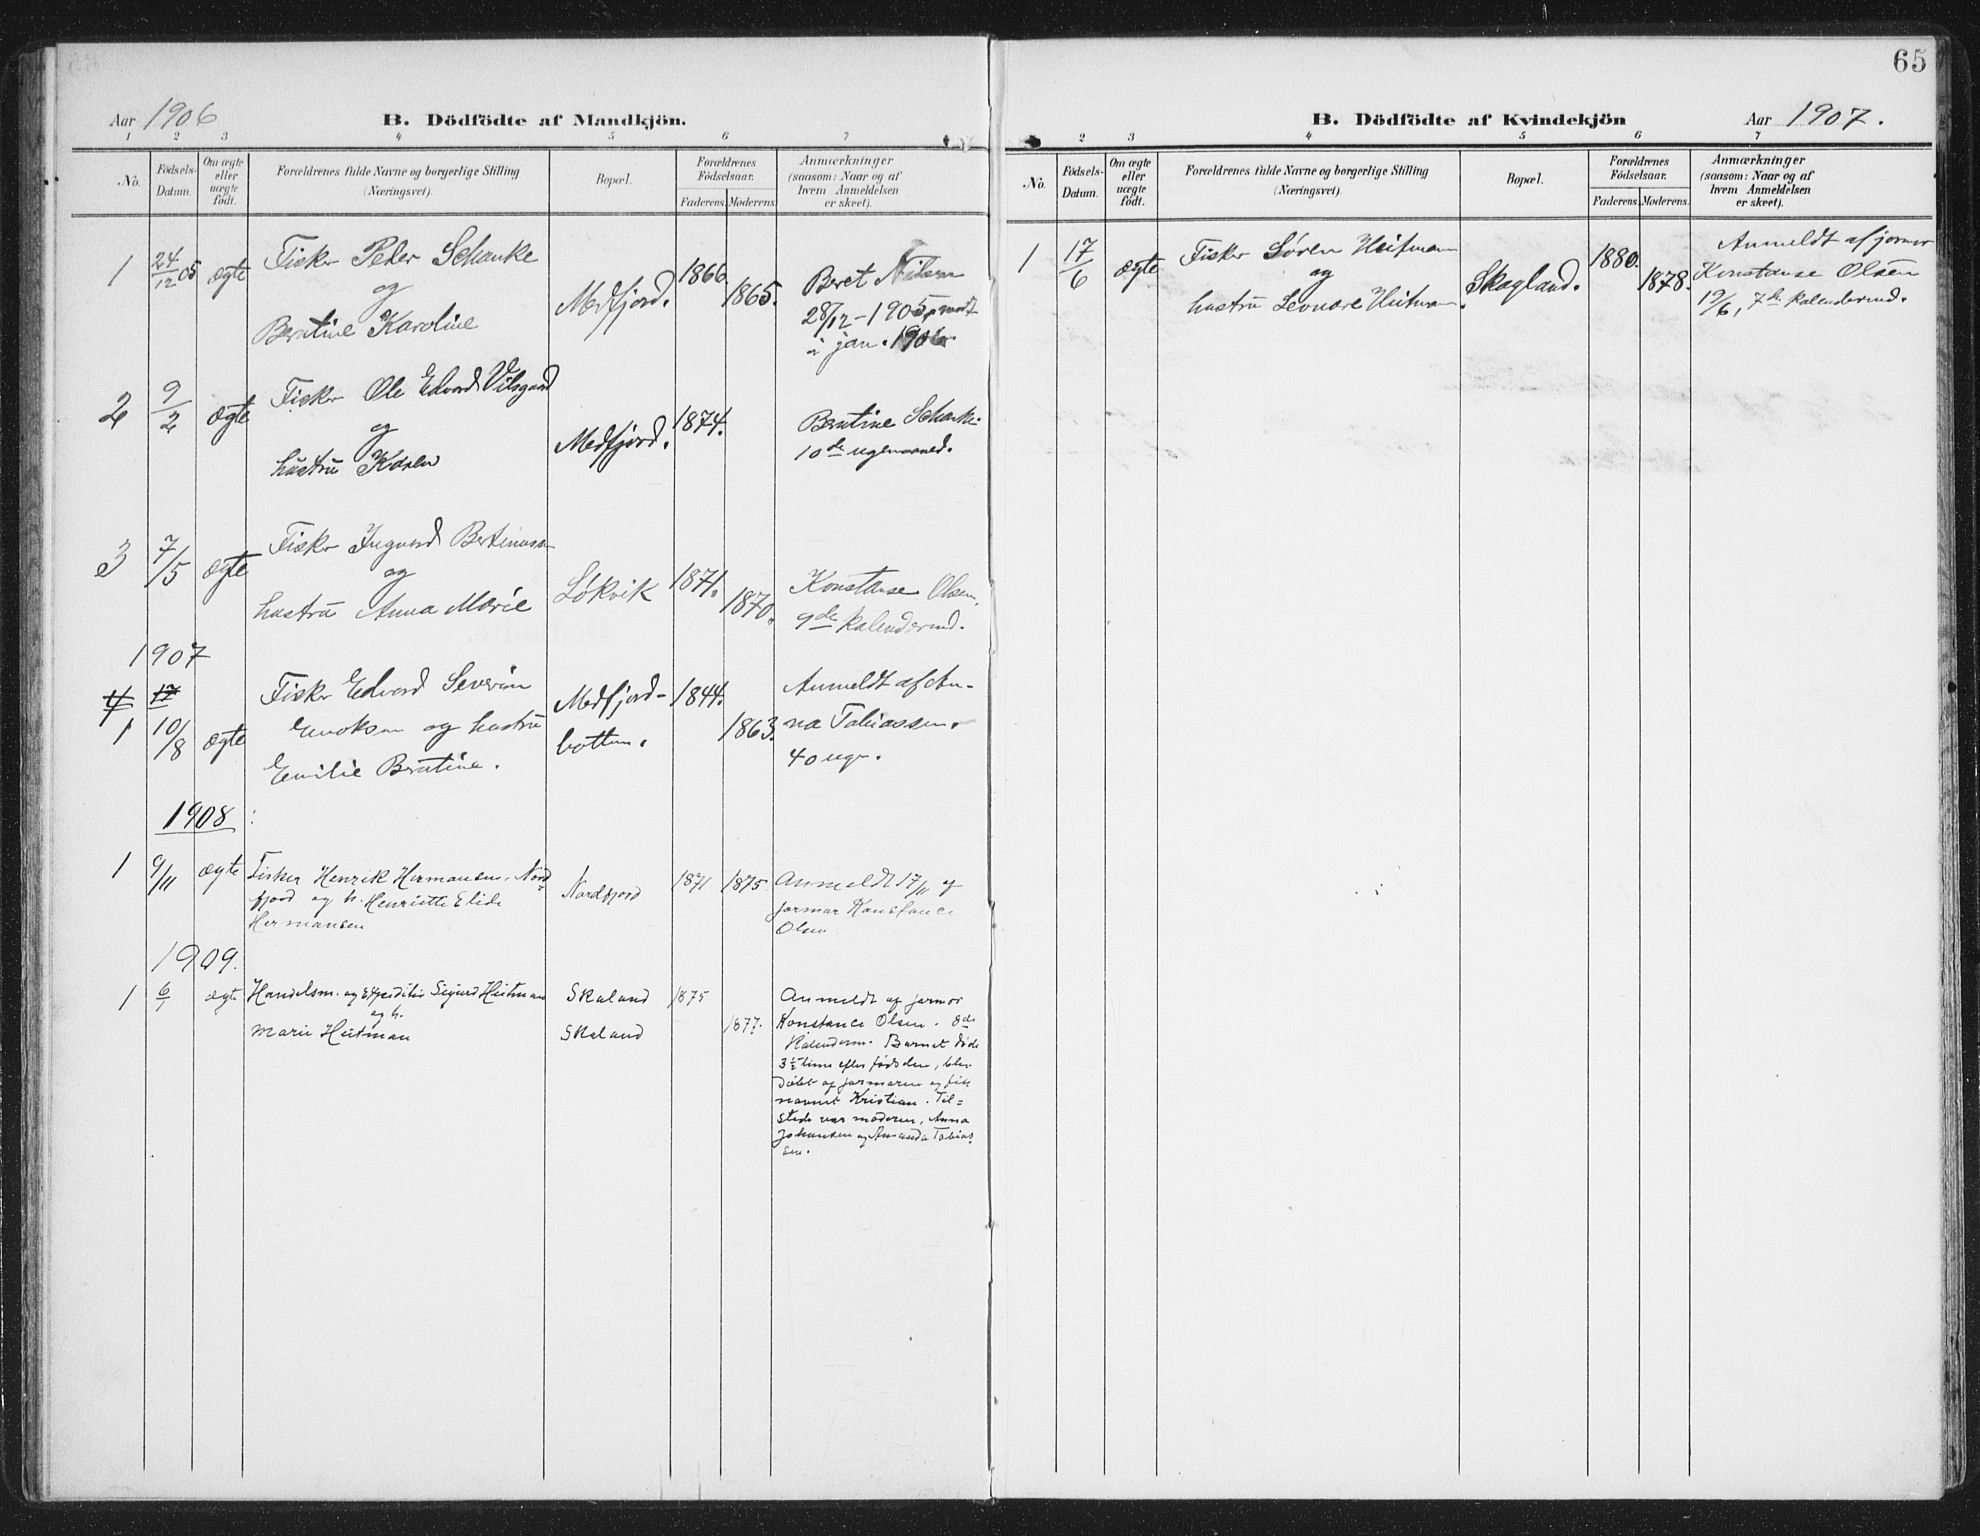 65
Aar 1906
B. Dödfödte af Mandkjön.
1 2 3 4 5 6 7
No.
Fødsels-Datum.
Om ægte eller uægte født.
Forældrenes fulde Navne og borgerlige Stilling (Næringsvei).
Bopæl.
Forældrenes Fødselsaar.
Faderens. Moderens.
Anmærkninger (saasom: Naar og af hvem Anmeldelsen er skeet).
1 24/12 05 ægte Fisker Peder Schanke
og
Berntine Karoline
Medfjord. 1866. 1865.
Beret Nilsen
28/12 - 1905
i jan. 1906.
2 9/2 ægte Fisker Ole Edvard Vilsgaard
og
hustru Karen
Medfjord. 1874.
Berntine Schanke
10de
3 7/5 ægte Fisker Ingvard Bertinussen
og
hustru Anna Marie
Løkvik 1871. 1870.
Konstanse Olsen.
9de kalendermd.
1907
4 17
1 10/8 ægte Fisker Edvard Severin
Enoksen og hustru
Emilie Berntine.
Medfjord-
botten. 1844. 1863.
Anmeldt af An-
na Tobiassen.
40 uger.
1908:
1 9/11 ægte Fisker Henrik Hermansen, Nord-
fjord og h. Henriette Elide
Hermansen
Nordfjord 1871 1875.
Anmeldt 17/11 af
jormor Konstance
Olsen
1909.
1 6/1 ægte Handelsm. og Expeditør Sigurd Heitman
og h.
Marie Heitman
Skaland 1875
Skaland 1877.
Anmeldt af jormor
Konstance Olsen. 8de
Kalenderm. Barnet døde
3½ time efter fødselen, blev
døbt af jormoren og fik
navnet Kristian. Til-
stede var moderen, Anna
Johansen og Amanda Tobias-
sen.
B. Dödfödte af Kvindekjön
Aar 1907.
2 3 4 5 6 7
No.
Fødsels-Datum.
Om ægte eller uægte født.
Forældrenes fulde Navne og borgerlige Stilling (Næringsvei).
Bopæl.
Forældrenes Fødselsaar.
Faderens. Moderens.
Anmærkninger (saasom: Naar og af hvem Anmeldelsen er skeet).
1 17/6 ægte Fisker Søren Heitmann
og
hustru Leonore Heitman.
Skagland. 1880. 1878.
Anmeldt af jormor
Konstanse Olsen
19/6, 7de kalendermd.